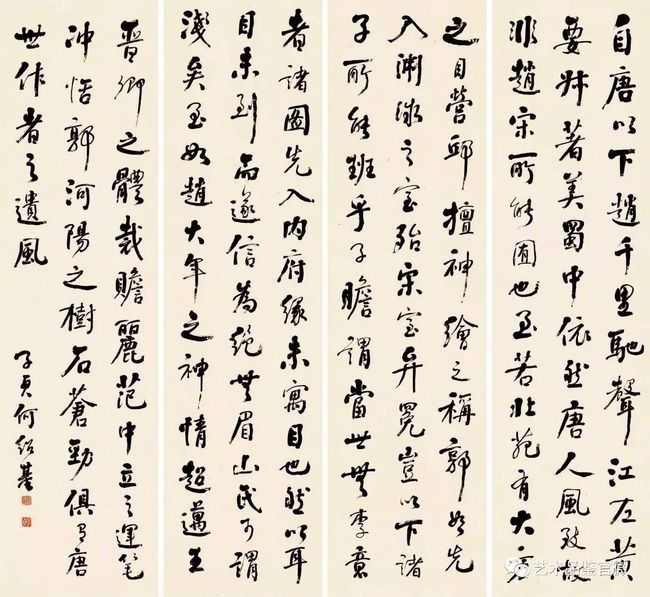 自唐以下趙千里馳聲江左黃
要叔著美蜀中依然唐人風致故
非趙宋所能囿也至若北苑有大方
之目營邱擅神繪之稱郭如先
入淵源之室殆宋室弁冕豈以下諸
子所能班乎子瞻謂當世無李意
者諸圖先入內府緣未寓目也然以耳
目未到而遂信為絕無眉山氏可謂
淺矣至如趙大年之神情超邁王
晉卿之體裁贍麗范中立之運筆
沖恬郭河陽之樹石蒼勁俱有唐
世作者之遺風
子貞何紹基
艺术品鉴官微